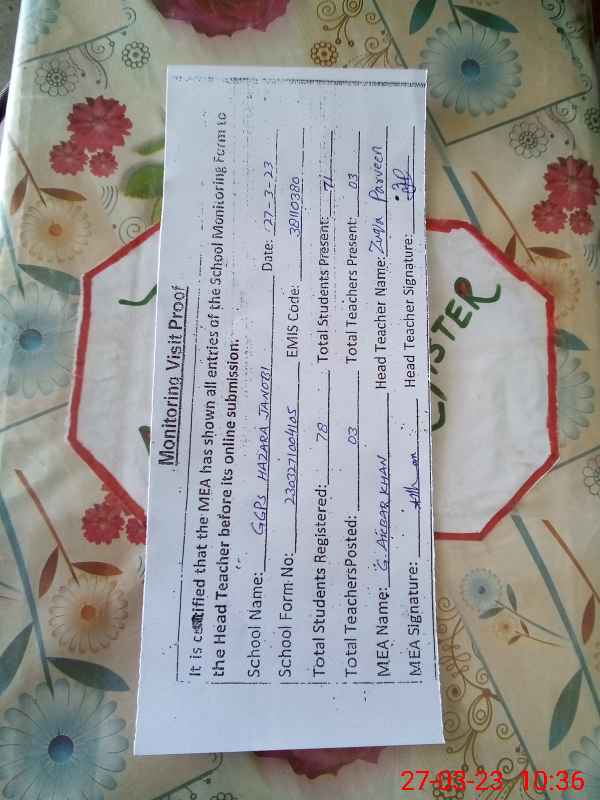 Monitoring Visit Proof
It is certified that the MEA has shown all entries of the School Monitoring Form to
the Head Teacher before its online submission.
School Name: GGPS HAZARA JANOBI Date: 27-3-23
School Form No: 2303271004105 EMIS Code: 38110380
Total Students Registered: 78 Total Students Present: 71
Total TeachersPosted: 03 Total Teachers Present: 03
MEA Name: G. AKBAR KHAN Head Teacher Name: Parveen
MEA Signature: Head Teacher Signature:
STER
27-03-23 10:36